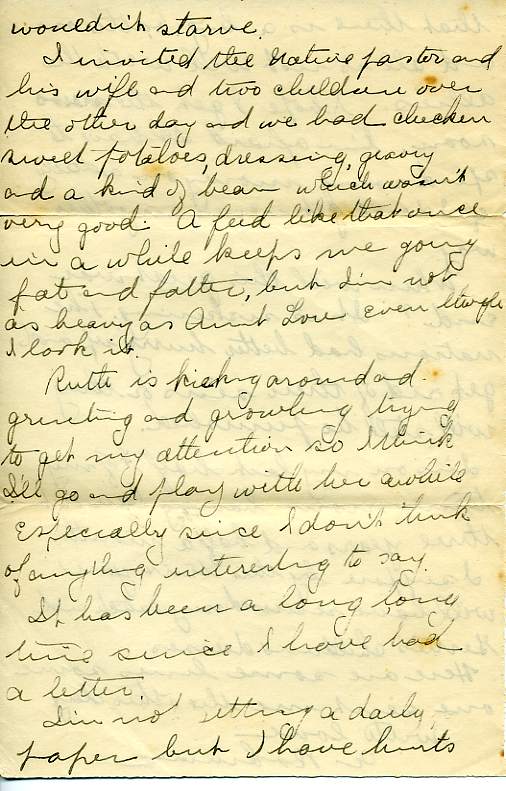 wouldn't starve.
I invited the native pastor and
his wife and two children over
the other day and we had chicken
sweet potatoes, dressing, gravy
and a kind of bean which wasn't
very good. A feed like that once
in a while keeps me going
fat and fatter, but I'm not
as heavy as Aunt Lou even though
I look it.
Ruth is kicking around and
grunting and growling trying
to get my attention so I think
I'll go and play with her awhile
Especially since I don't think
of anything interesting to say.
It has been a long, long
time since I have had
a letter.
I'm not getting a daily
paper but I have hints